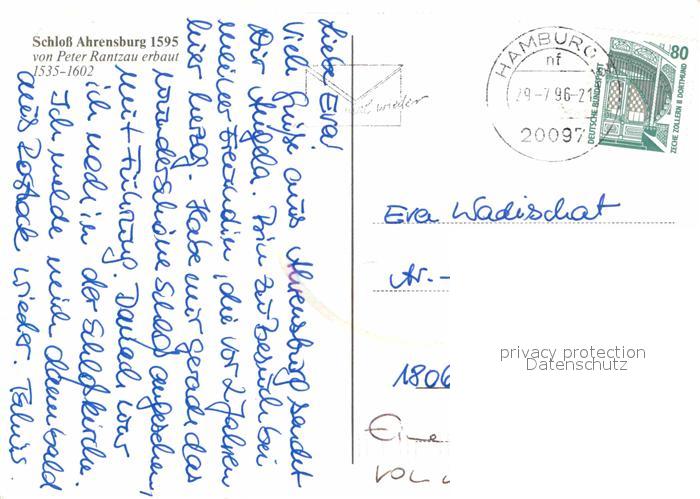 Schloß Ahrensburg 1595
von Peter Rantzau erbaut
1535–1602
Liebe Eva!
Viele Grüße aus Ahrensburg sendet
Dir Angela. Bin zu Besuch bei
meiner Freundin, die vor 2 Jahren
hier herzog. Habe mir gerade das
wunderschöne Schloß angesehen,
mit Führung. Danach war
ich noch in der Schloßkirche.
Ich melde mich dann bald
aus Rostock wieder.
wieder
HAMBURG
nf
29-7.96-21
20097
80
DEUTSCHE BUNDESPOST
ZECHE ZOLLERN II DORTMUND
Eva Wadischat
Ar.-
1806
privacy protection
Datenschutz
Eine